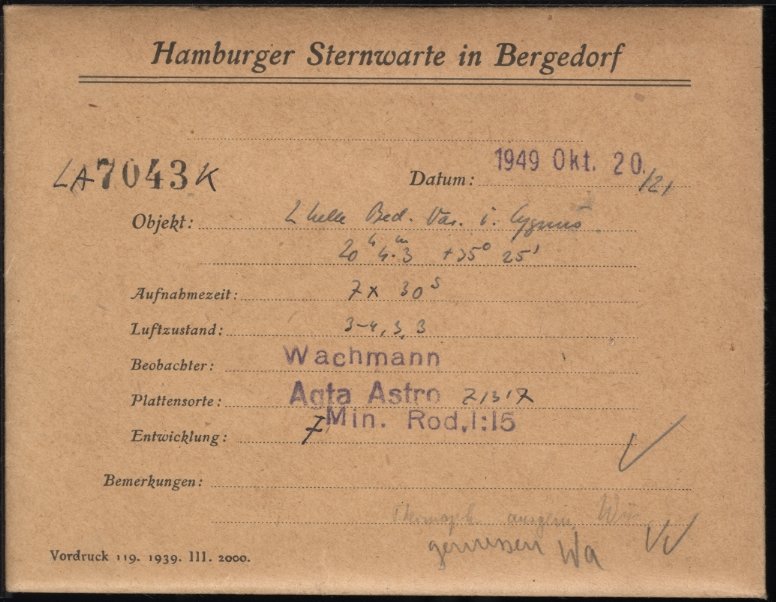 Hamburger Sternwarte in Bergedorf
LA 7043 K
Datum: 1949 Okt. 20./21
Objekt: 2 helle Bed. Var. i. Cygnus
20h 4m.3 +35° 25'
Aufnahmezeit: 7 x 30s
Luftzustand: 3-4, 3, 3
Beobachter: Wachmann
Plattensorte: Agfa Astro
Entwicklung: 7 Min. Rod. 1:15
Bemerkungen:
gemessen Wa
Vordruck 119. 1939. III. 2000.